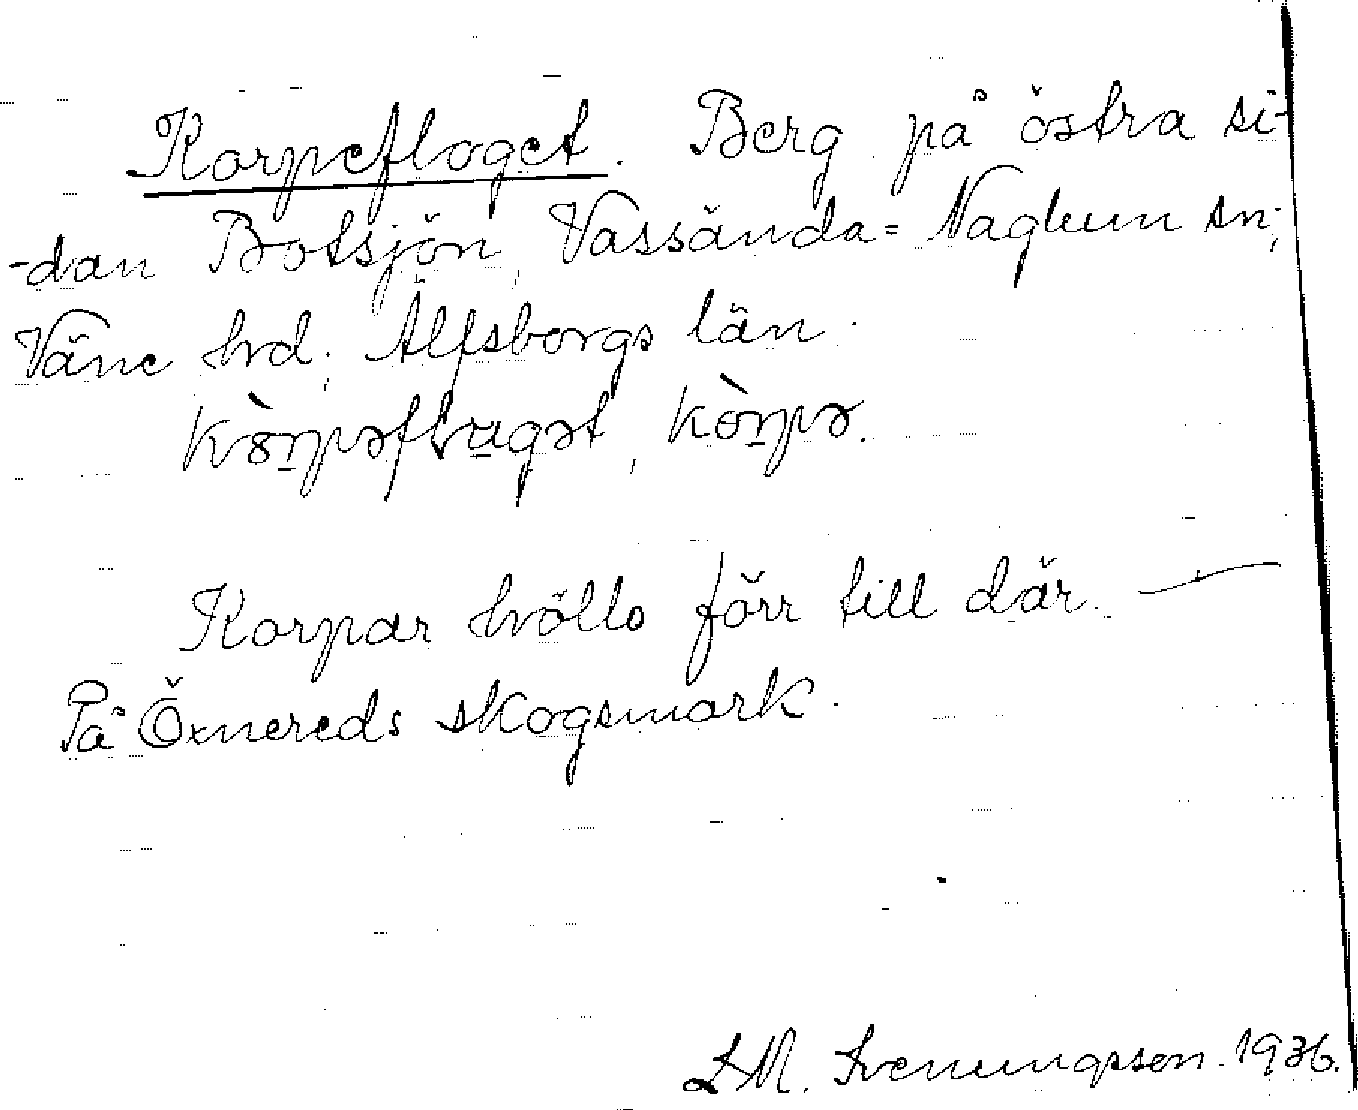 Korpefloget. Berg på östra si-
-dan Botsjön, Vassända=Naglum sn;
Väne hrd; Älfsborgs län.
Korpar höllo förr till där. —
På Öxnereds skogsmark.
L M. Svenungsson. 1936.